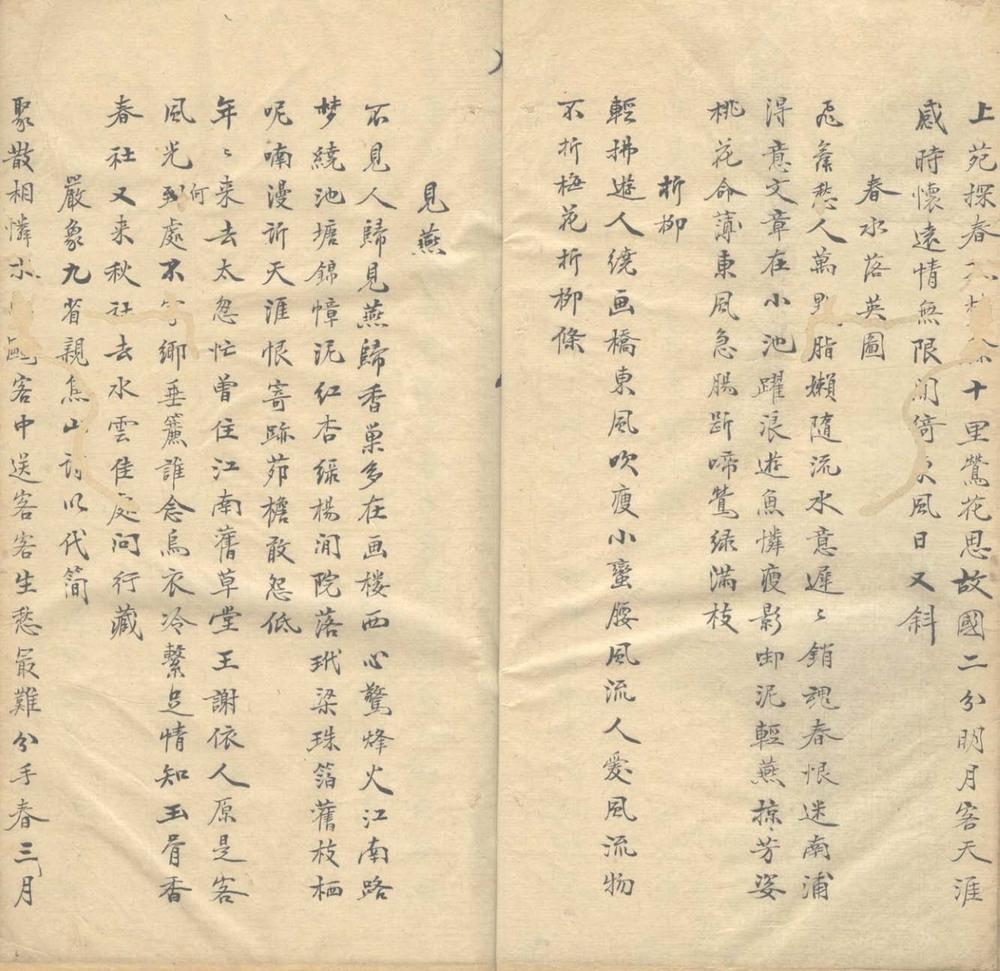 上苑探春 十里鶯花思故國二分明月客天涯
感時懷遠情無限閒倚 風日又斜
春水落英圖
愁人萬點脂嬾隨流水意遲〻銷魂春恨迷南浦
得意文章在小池躍浪遊魚憐瘦影啣泥輕燕掠芳姿
桃花命薄東風急腸斷啼鶯綠滿枝
折柳
輕拂遊人繞画橋東風吹瘦小蠻腰風流人愛風流物
不折梅花折柳條
見燕
不見人歸見燕歸香巢多在画楼西心驚烽火江南路
梦繞池塘錦幛泥紅杏綠楊閒院落玳梁珠箔舊枝栖
呢喃漫訴天涯恨寄跡茆檐敢怨低
年〻来去太忽忙曾住江南舊草堂王謝依人原是客
風光何處不 鄉垂簾誰念烏衣冷繫足情知玉骨香
春社又来秋社去水雲佳處问行藏
嚴象九省親烏山 以代簡
聚散相憐 客中送客客生愁最難分手春三月